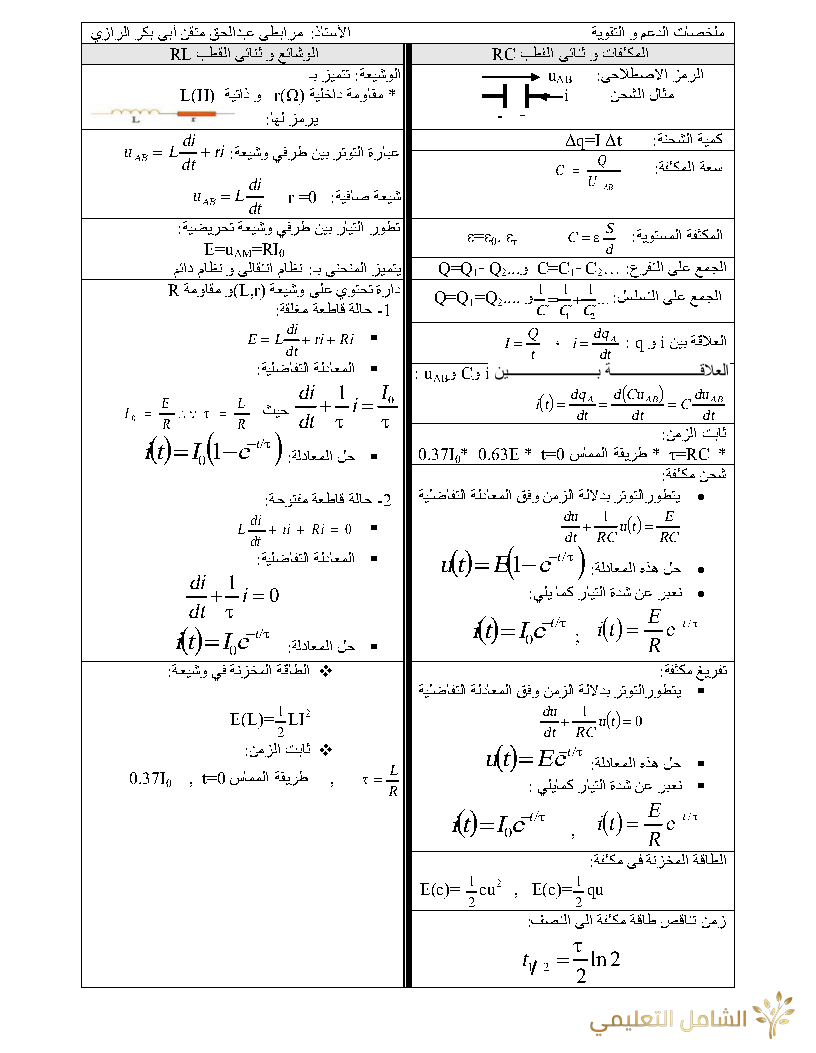 ملخصات الدعم و التقوية الأستاذ: مرابطي عبدالحق متقن أبي بكر الرازي
المكثفات و ثنائي القطب RC
الرمز الاصطلاحي: uAB
مثال الشحن i
- -
كمية الشحنة: Δq=I Δt
سعة المكثفة: C = Q/U AB
المكثفة المستوية: C = ε S/d ε=ε0. εr
الجمع على التفرع: C=C1- C2… و Q=Q1- Q2...
الجمع على التسلسل: 1/C=1/C1+1/C2... و Q=Q1=Q2....
العلاقة بين i و q : i = dqA/dt ، I = Q/t
العلاقـــــة بـــــين i و C و uAB :
i(t) = dqA/dt = d(CuAB)/dt = C duAB/dt
ثابت الزمن:
* τ=RC * طريقة المماس t=0 * 0.63E *0.37I0
شحن مكثفة:
• يتطور التوتر بدلالة الزمن وفق المعادلة التفاضلية
du/dt + 1/RC u(t) = E/RC
• حل هذه المعادلة: u(t) = E(1−e−t/τ)
• نعبر عن شدة التيار كمايلي:
i(t) = I0e−t/τ ; i(t) = E/R e −t/τ
تفريغ مكثفة:
▪ يتطور التوتر بدلالة الزمن وفق المعادلة التفاضلية
du/dt + 1/RC u(t) = 0
▪ حل هذه المعادلة: u(t) = Ee−t/τ
▪ نعبر عن شدة التيار كمايلي :
i(t) = I0e−t/τ , i(t) = E/R e −t/τ
الطاقة المخزنة في مكثفة:
E(c)= 1/2 cu2 , E(c)=1/2 qu
زمن تناقص طاقة مكثفة الى النصف:
t1/2 = τ/2 ln 2
الوشائع و ثنائي القطب RL
الوشيعة: تتميز بـ
* مقاومة داخلية r(Ω) و ذاتية L(H)
يرمز لها:
L r
عبارة التوتر بين طرفي وشيعة: u AB = L di/dt + ri
شيعة صافية: r =0 uAB = L di/dt
تطور التيار بين طرفي وشيعة تحريضية:
E=uAM=RI0
يتميز المنحني بـ: نظام انتقالي و نظام دائم
دارة تحتوي على وشيعة (L,r)و مقاومة R
1- حالة قاطعة مغلقة:
▪ E = L di/dt + ri + Ri
▪ المعادلة التفاضلية:
di/dt + 1/τ i = I0/τ حيث I 0 = E/R ∴∵ τ = L/R
▪ حل المعادلة: i(t) = I0(1−e−t/τ)
2- حالة قاطعة مفتوحة:
▪ L di/dt + ri + Ri = 0
▪ المعادلة التفاضلية:
di/dt + 1/τ i = 0
▪ حل المعادلة: i(t) = I0e−t/τ
❖ الطاقة المخزنة في وشيعة:
E(L)=1/2 LI2
❖ ثابت الزمن:
τ = L/R , طريقة المماس t=0 , 0.37I0
الشامل التعليمي